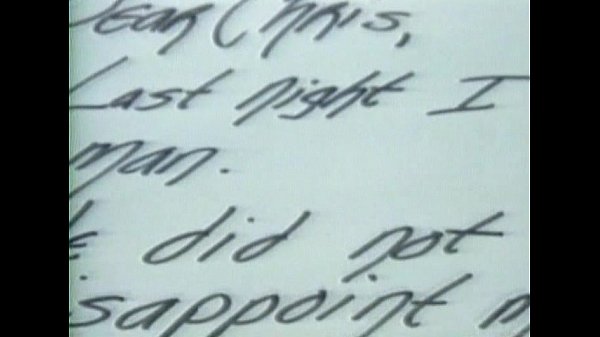 Dear Chris,
Last night I
man.
did not
isappoint m